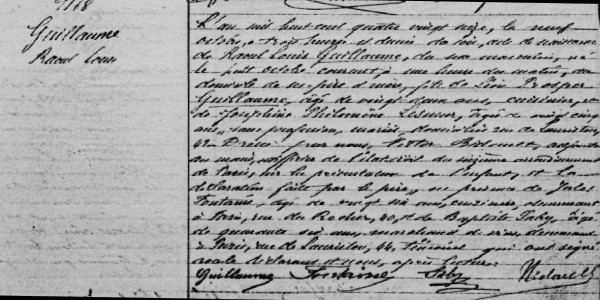 Guillaume
Raoul Louis
L'an mil huit cent quatre vingt seize, le neuf
octobre, à trois heures et demie du soir, acte de naissance
de Raoul Louis Guillaume, du sexe masculin, né
le huit octobre courant, à une heure du matin, au
domicile de ses père et mère, fils de Léon Prosper
Guillaume, âgé de vingt deux ans, cuisinier, et
de Joséphine Philomène, âgée de vingt cinq
ans, sans profession, mariés, domiciliés rue de
par nous, Victor, adjoint
au maire, officier de l'état civil du arrondissement
de Paris, sur la présentation de l'enfant, et la
déclaration faite par le père, en présence de Jules
Fontaine, âgé de vingt six ans, cuisinier, demeurant
à Paris, rue du Rocher, et de Baptiste, âgé
de quarante six ans, marchand de vins, demeurant
à Paris, rue de, 44, témoins qui ont signé
avec le déclarant et nous, après lecture.
Guillaume Fontaine